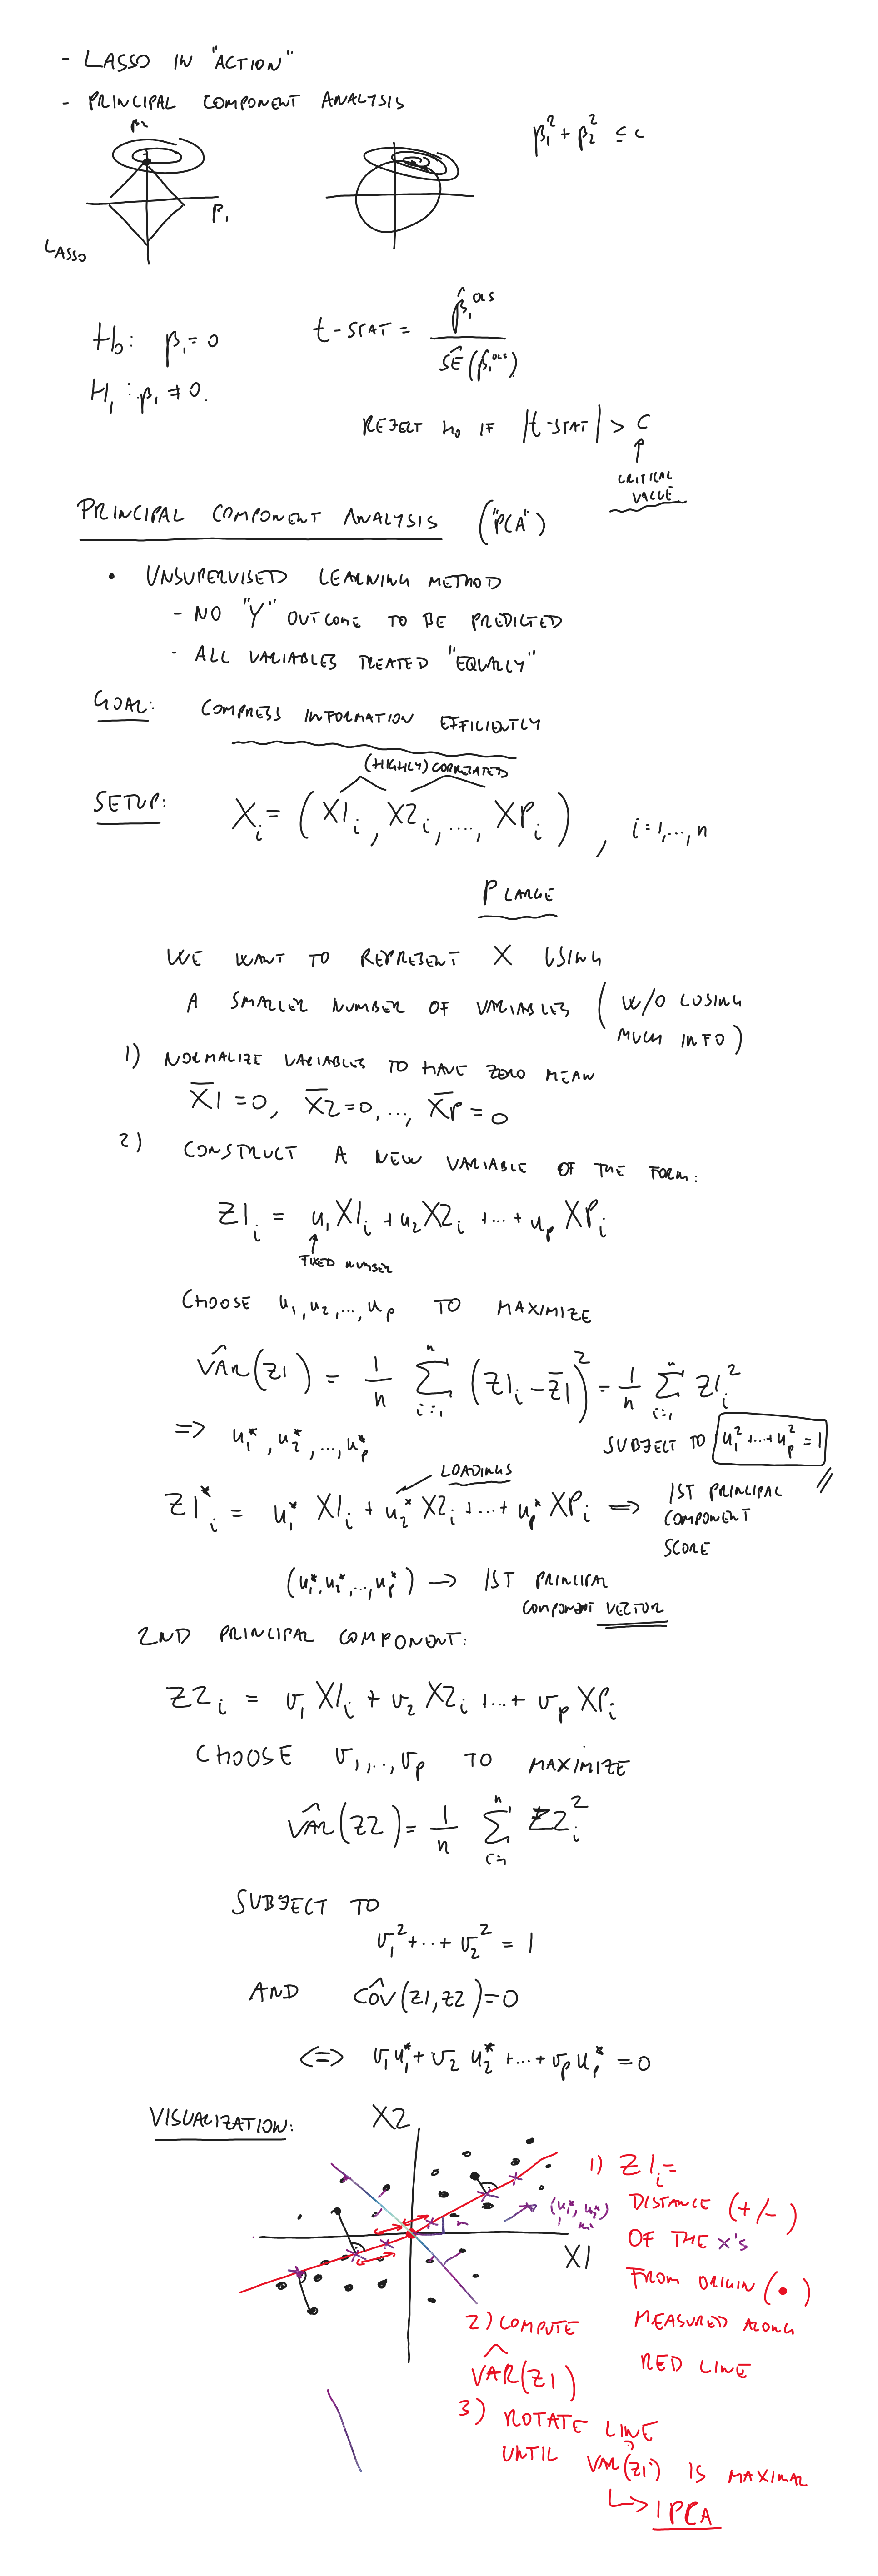 - LASSO IN "ACTION"
- PRINCIPAL COMPONENT ANALYSIS
β2
β1² + β2² ≤ c
β1
LASSO
H0: β1 = 0
t-STAT = β̂1^OLS / ŜE(β̂1^OLS)
H1: β1 ≠ 0.
REJECT H0 IF |t-STAT| > C
CRITICAL
VALUE
PRINCIPAL COMPONENT ANALYSIS ("PCA")
• UNSUPERVISED LEARNING METHOD
- NO "Y" OUTCOME TO BE PREDICTED
- ALL VARIABLES TREATED "EQUALLY"
GOAL: COMPRESS INFORMATION EFFICIENTLY
(HIGHLY) CORRELATED
SETUP: Xi = (X1i, X2i, ...., XPi), i=1,...,n
P LARGE
WE WANT TO REPRESENT X USING
A SMALLER NUMBER OF VARIABLES (W/O LOSING
MUCH INFO)
1) NORMALIZE VARIABLES TO HAVE ZERO MEAN
X̄1 = 0, X̄2 = 0, ..., X̄P = 0
2) CONSTRUCT A NEW VARIABLE OF THE FORM:
Z1i = u1 X1i + u2 X2i + ... + up XPi
FIXED NUMBER
CHOOSE u1, u2, ..., up TO MAXIMIZE
V̂AR(Z1) = 1/n Σ_{i=1}^n (Z1i - Z̄1)² = 1/n Σ_{i=1}^n Z1i²
SUBJECT TO u1² + ... + up² = 1
=> u1*, u2*, ..., up*
LOADINGS
Z1*i = u1* X1i + u2* X2i + ... + up* XPi => 1ST PRINCIPAL
COMPONENT
SCORE
(u1*, u2*, ..., up*) → 1ST PRINCIPAL
COMPONENT VECTOR
2ND PRINCIPAL COMPONENT:
Z2i = v1 X1i + v2 X2i + ... + vp XPi
CHOOSE v1, .., vp TO MAXIMIZE
V̂AR(Z2) = 1/n Σ_{i=1}^n Z2i²
SUBJECT TO
v1² + ... + v2² = 1
AND ĈOV(Z1,Z2)=0
<=> v1 u1* + v2 u2* + ... + vp up* = 0
VISUALIZATION: X2
(u1*, u2*)
X1
1) Z1i =
DISTANCE (+/-)
OF THE x's
FROM ORIGIN (•)
MEASURED ALONG
RED LINE
2) COMPUTE
V̂AR(Z1)
3) ROTATE LINE
UNTIL V̂AR(Z1) IS MAXIMAL
↳ 1 PCA